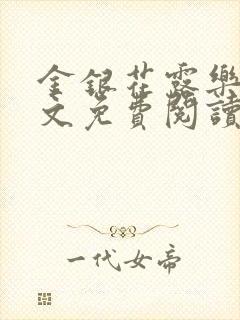 金銀花露樂
文免費閱讀
一代女帝